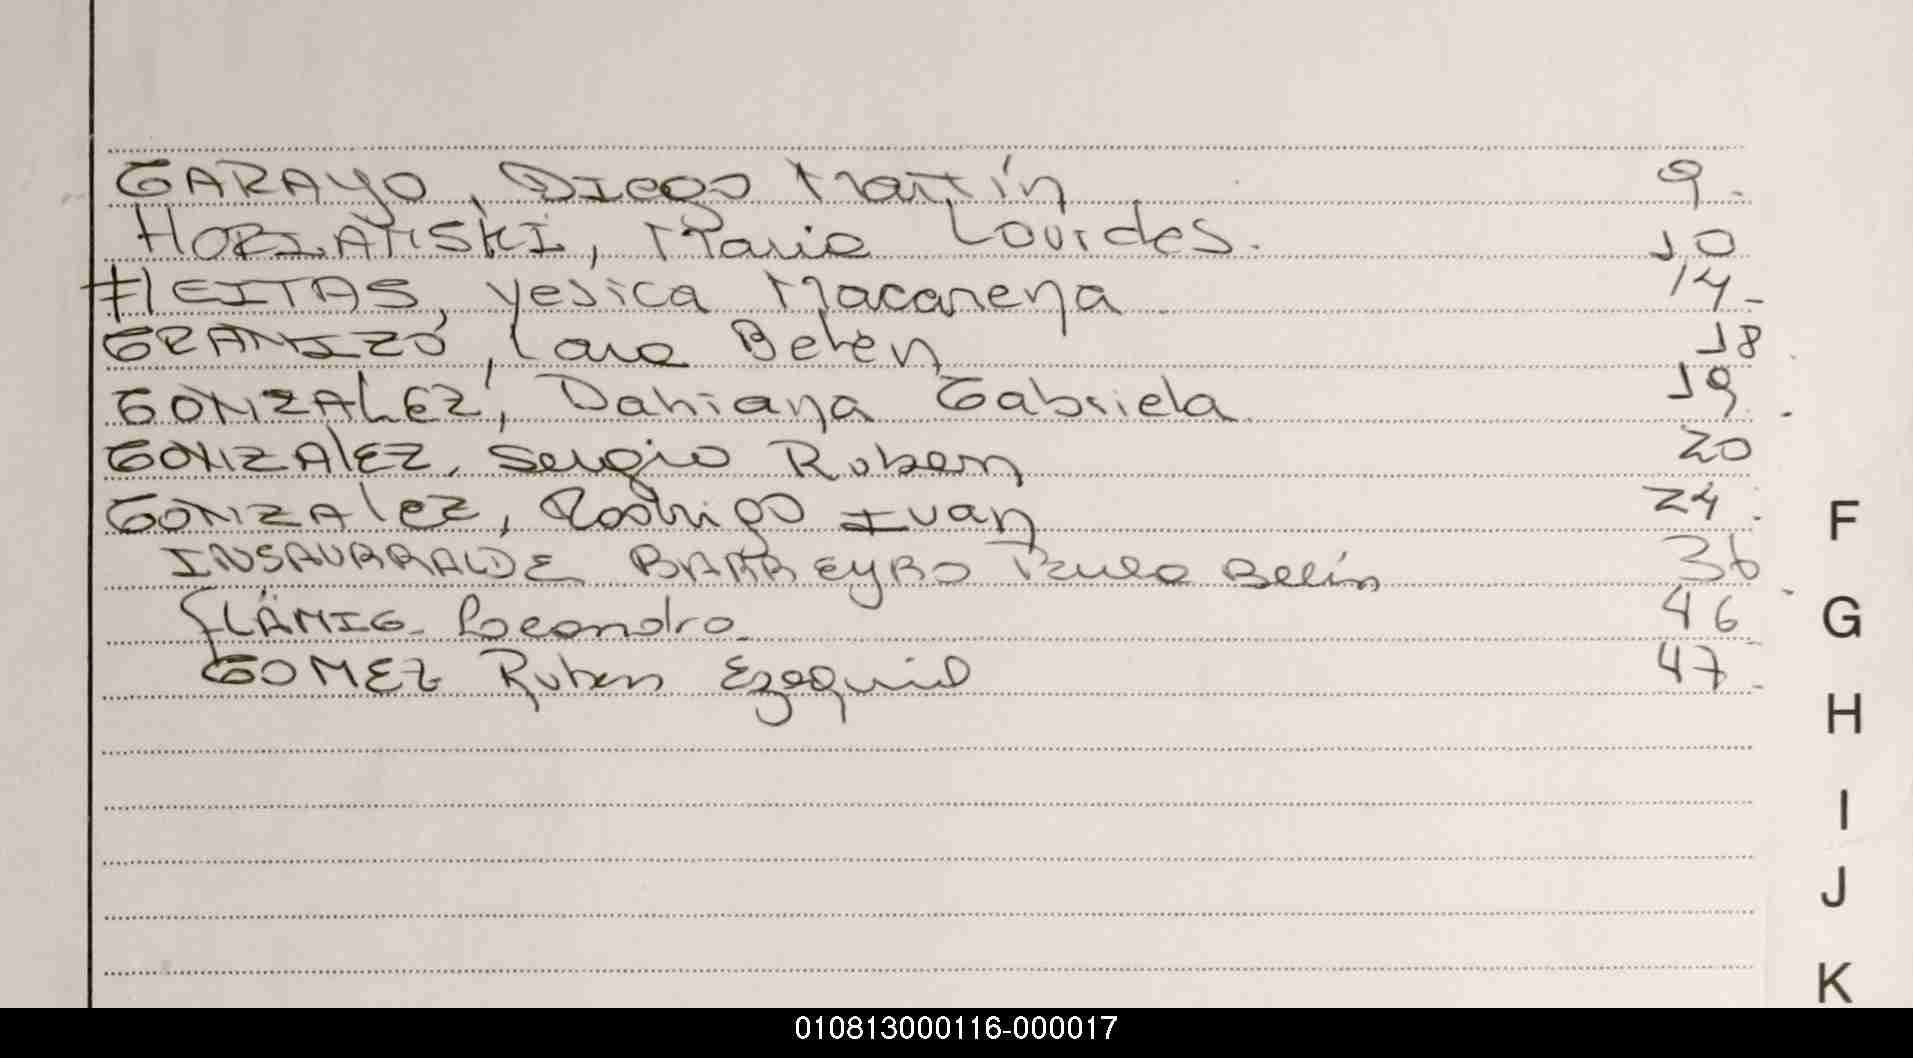 GARAYO, Diego Martín 9.
HORIANSKI, Maria Lourdes. 10
FlEITAS, yesica Macarena 14-
GRANIZO, Lara Belen 18
GONZALEZ, Dahiana Gabriela 19.
GONZAlEZ, Sergio Ruben 20
GONZAlez, Rodrigo Ivan 24.
INSAURRALDE BARREYRO Paula Belén 36
FLÄMIG- Leandro. 46
GOMEZ Ruben Ezequiel 47-
F
G
H
I
J
K
010813000116-000017